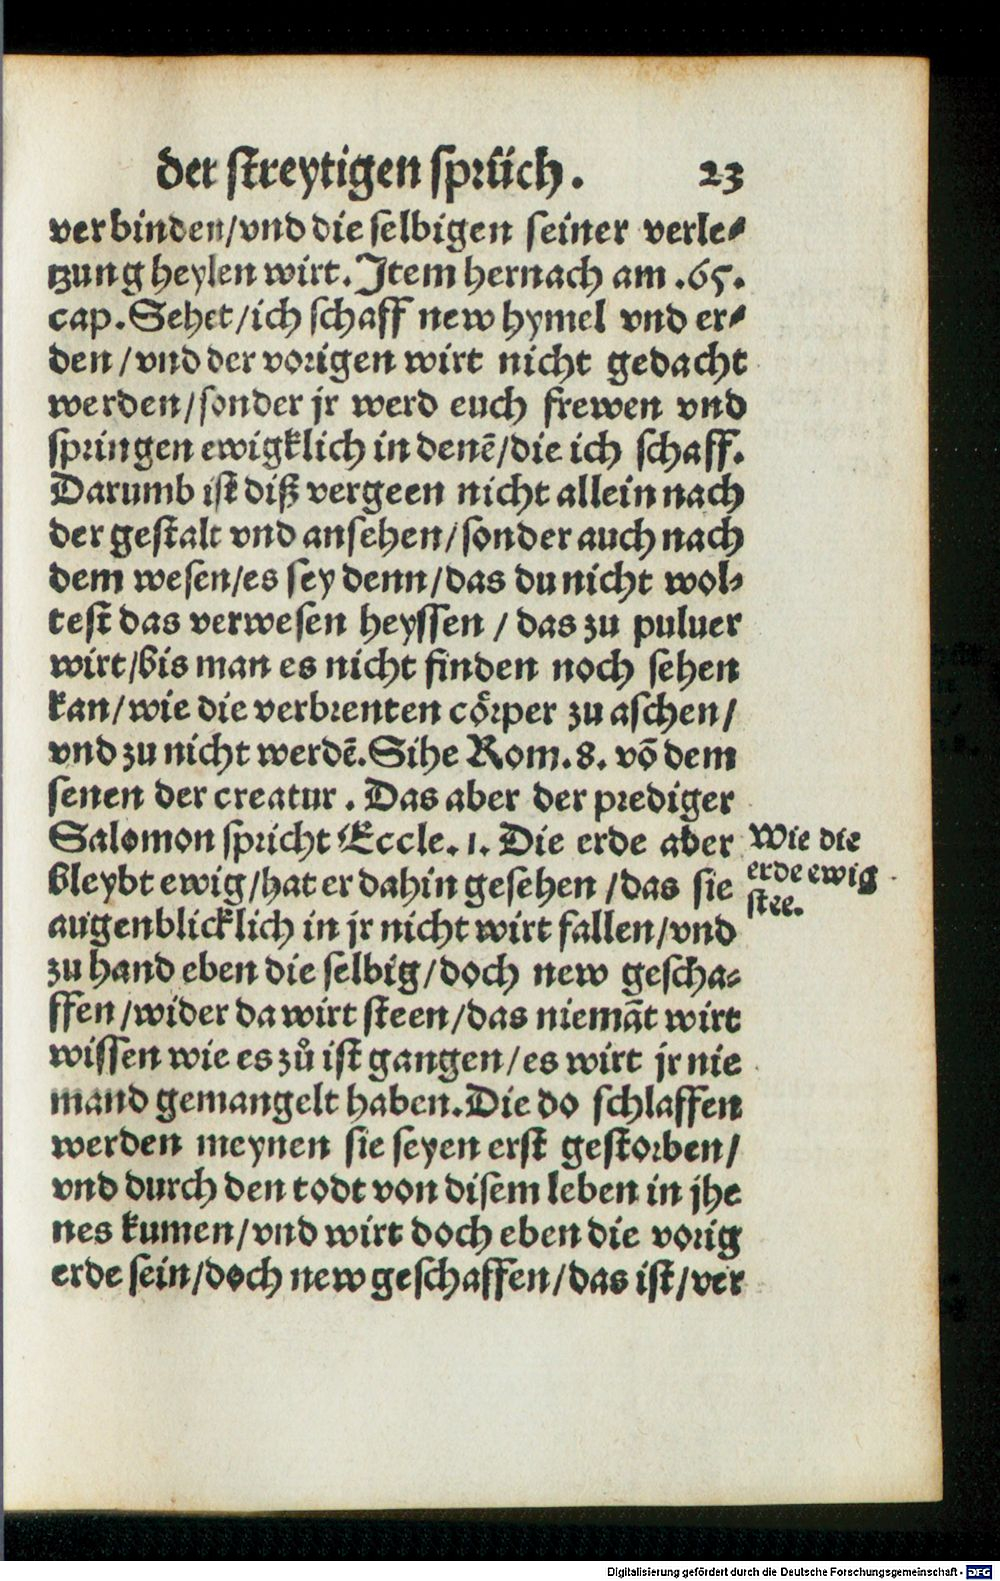 der streytigen sprüch. 23
verbinden/vnd die selbigen seiner verle-
tzung heylen wirt. Jtem hernach am .65.
cap. Sehet/ich schaff new hymel vnd er-
den/vnd der vorigen wirt nicht gedacht
werden/sonder jr werd euch frewen vnd
springen ewigklich in denē/die ich schaff.
Darumb ist diß vergeen nicht allein nach
der gestalt vnd ansehen/sonder auch nach
dem wesen/es sey denn/das du nicht wol-
test das verwesen heyssen/das zu puluer
wirt/bis man es nicht finden noch sehen
kan/wie die verbrenten cörper zu aschen/
vnd zu nicht werdē. Sihe Rom. 8. vō dem
senen der creatur. Das aber der prediger
Salomon spricht Eccle. 1. Die erde aber
bleybt ewig/hat er dahin gesehen/das sie
augenblicklich in jr nicht wirt fallen/vnd
zu hand eben die selbig/doch new gescha-
ffen/wider da wirt steen/das niemāt wirt
wissen wie es zů ist gangen/es wirt jr nie
mand gemangelt haben. Die do schlaffen
werden meynen sie seyen erst gestorben/
vnd durch den todt von disem leben in jhe
nes kumen/vnd wirt doch eben die vorig
erde sein/doch new geschaffen/das ist/ver
Wie die
erde ewig
stee.
Digitalisierung gefördert durch die Deutsche Forschungsgemeinschaft - DFG